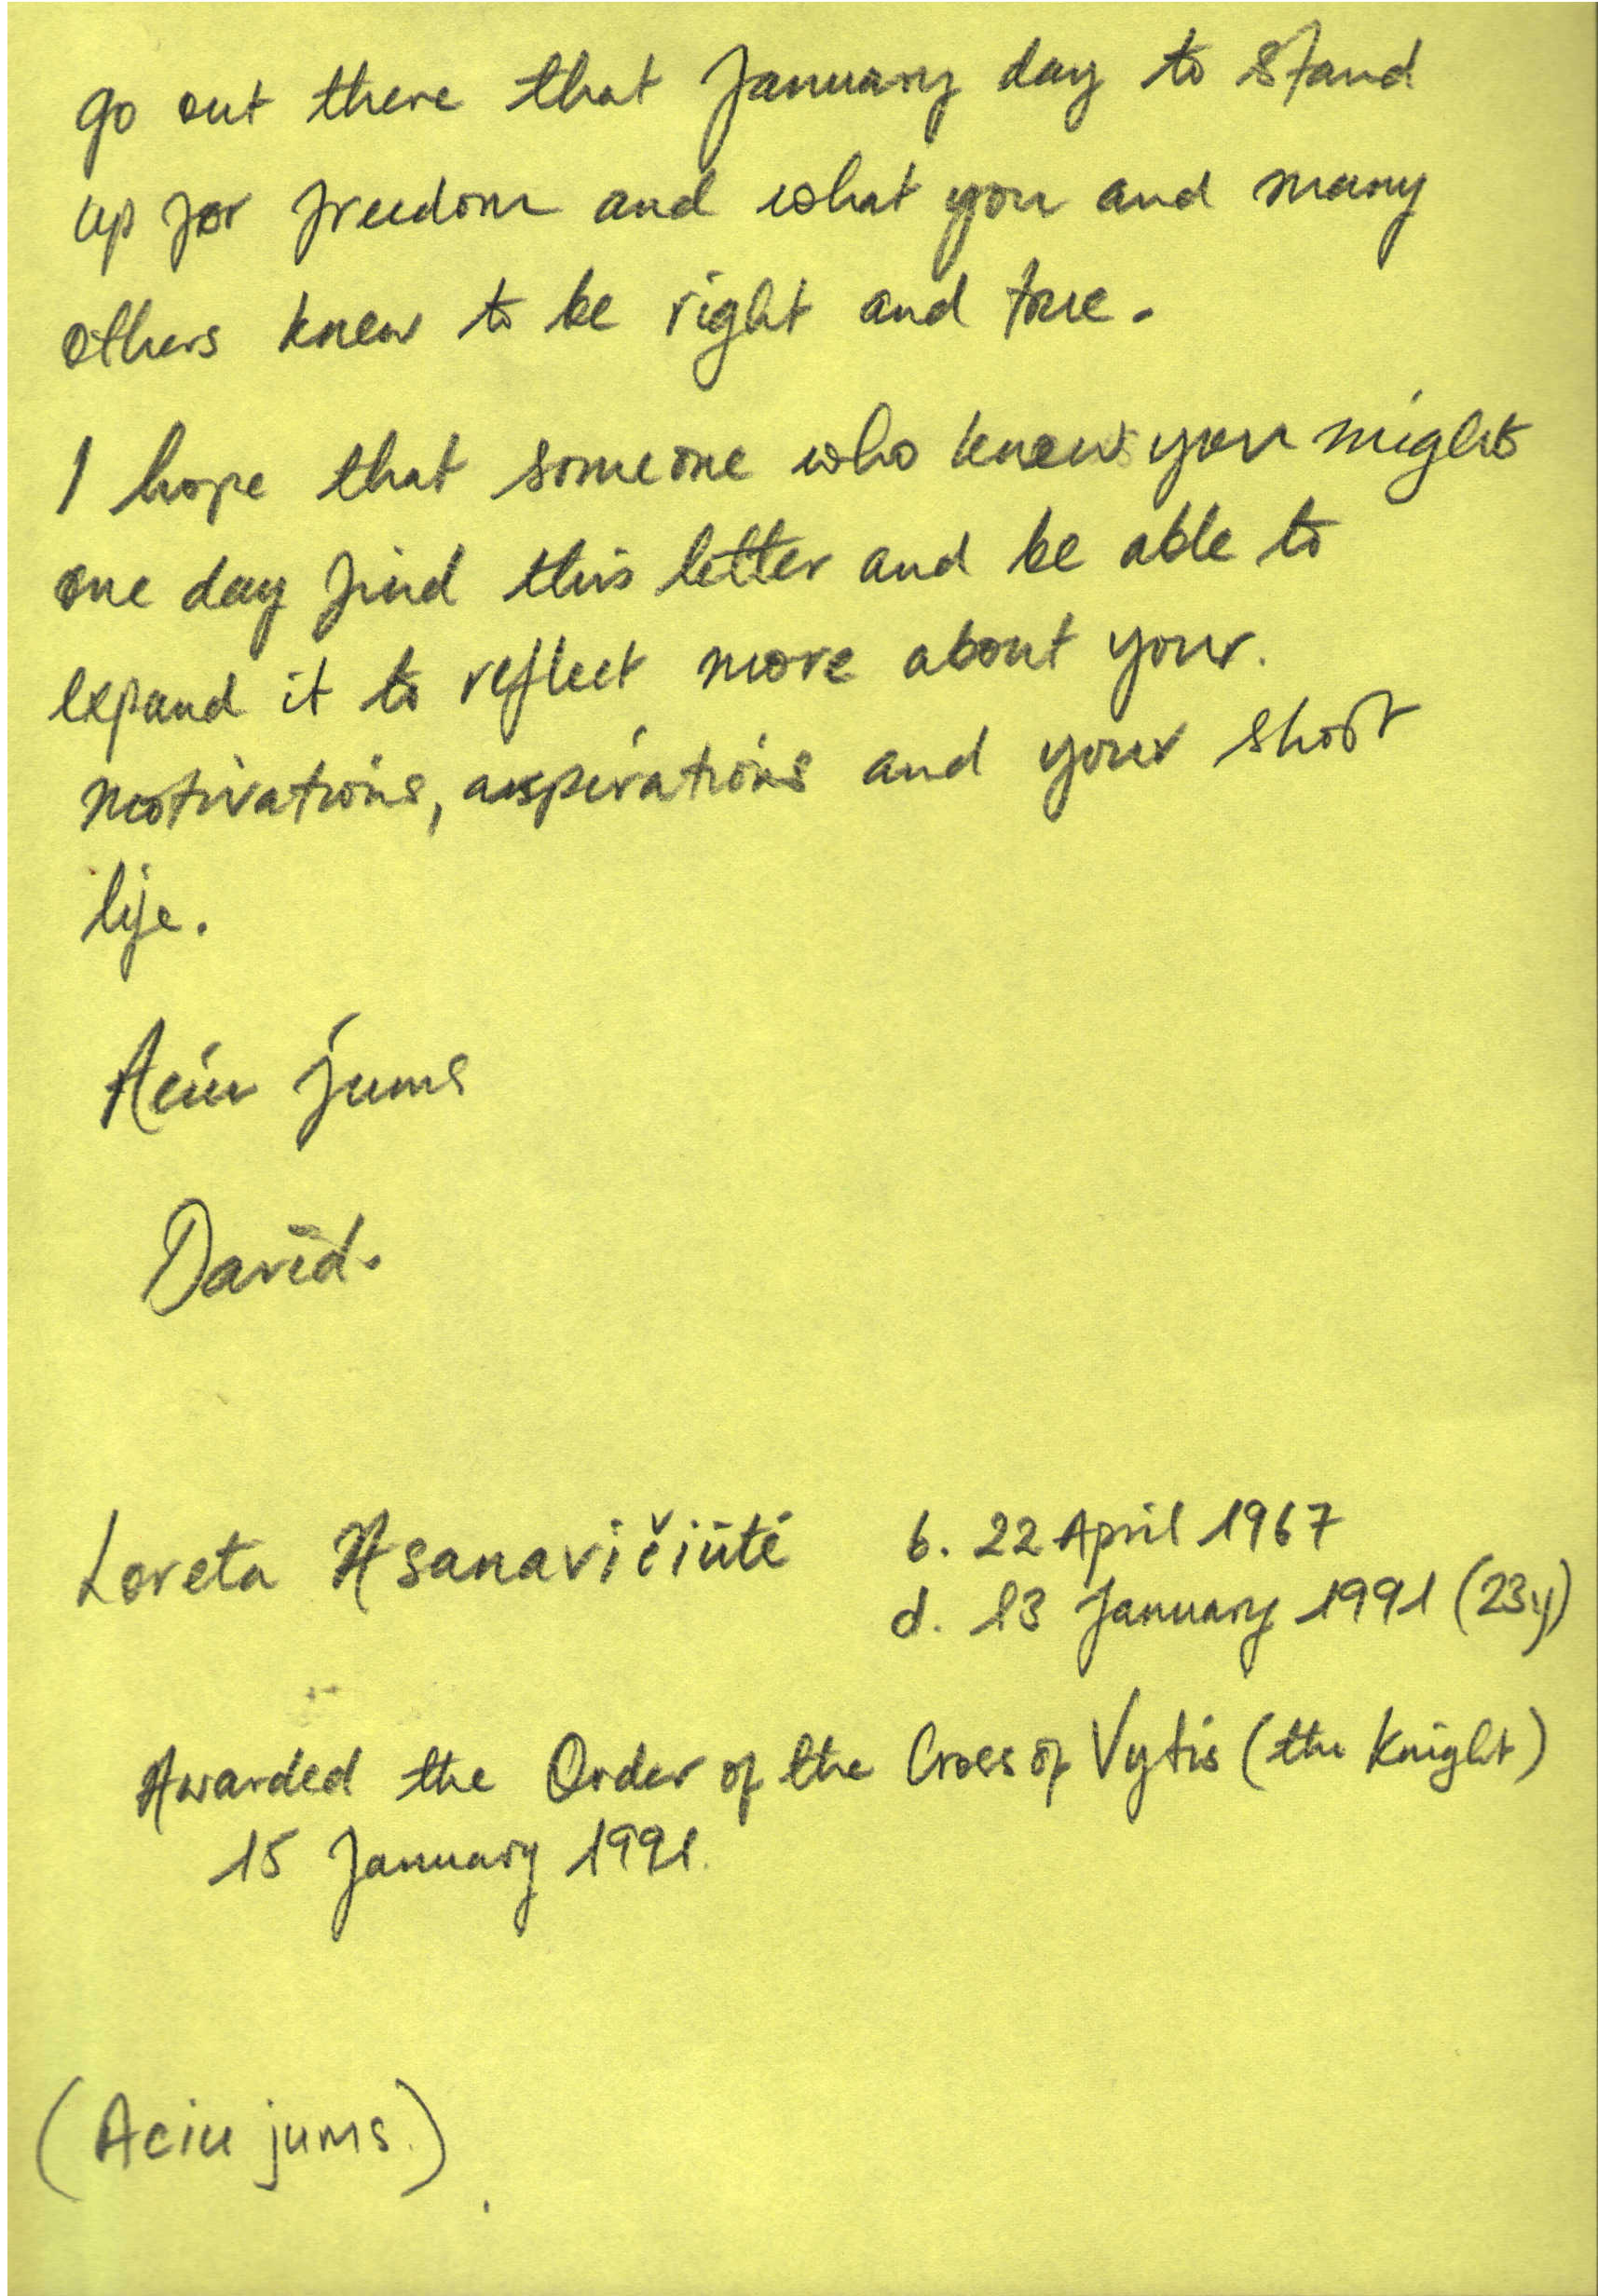 go out there that January day to stand
up for freedom and what you and many
others knew to be right and true.
I hope that someone who knew you might
one day find this letter and be able to
expand it to reflect more about your.
motivations, aspirations and your short
life.
Aciu jums
David.
Loreta Asanavičiūtė b. 22 April 1967
d. 13 January 1991 (23y)
Awarded the Order of the Cross of Vytis (the Knight)
15 January 1991.
(Aciu jums.)